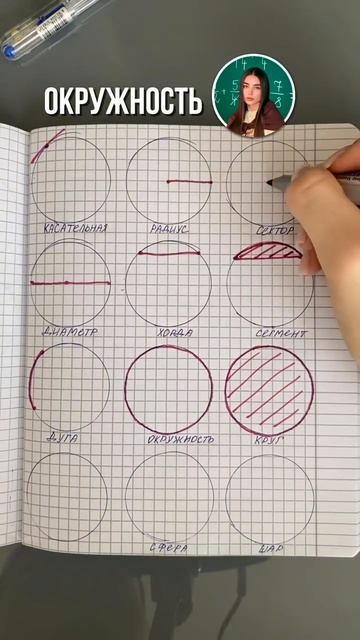 ОКРУЖНОСТЬ
КАСАТЕЛЬНАЯ РАДИУС СЕКТОР
ДИАМЕТР ХОРДА СЕГМЕНТ
ДУГА ОКРУЖНОСТЬ КРУГ
СФЕРА ШАР